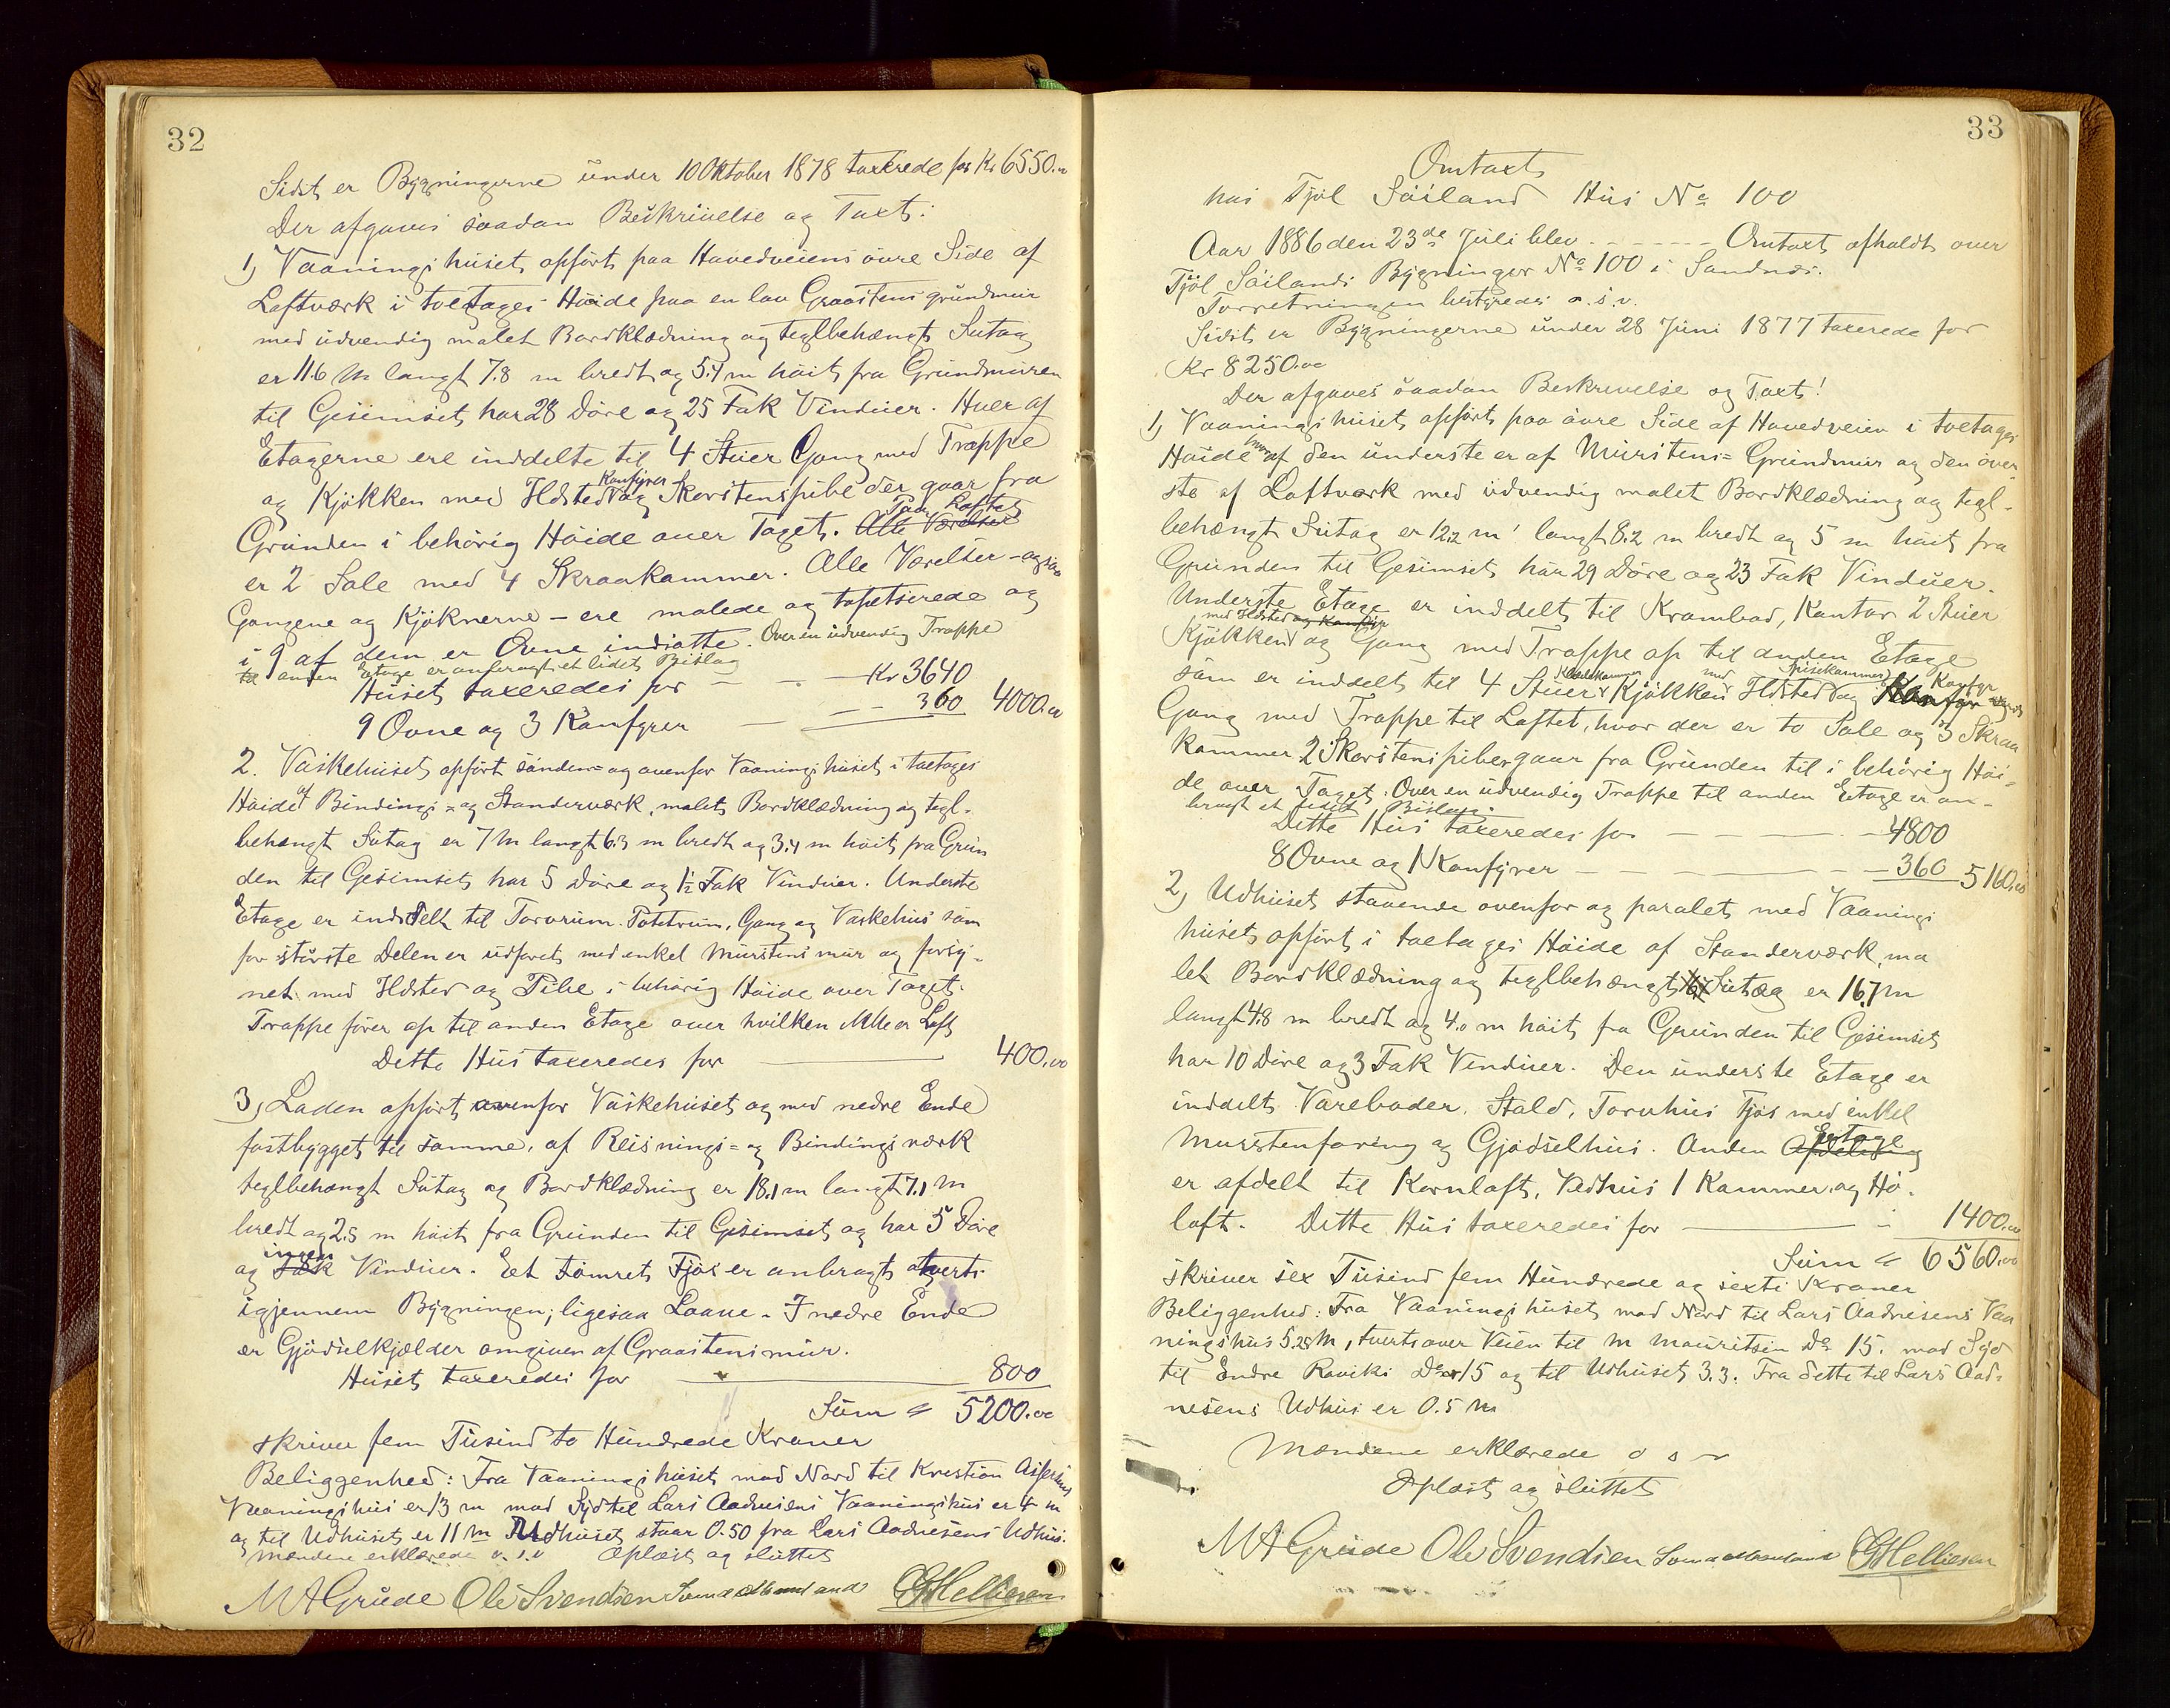 32
Sidst er Bygningerne under 10 Oktober 1878 taxerede for Kr 6550.00
Der afgaves saadan Beskrivelse og Taxt:
1) Vaaningshuset opført paa Hovedveiens øvre Side af
Loftværk i toetages Høide paa en lav Graastens grundmur
med udvendig malet Bordklædning og teglbehængt Sutag
er 11.6 m langt 7.8 m bredt og 5.4 m høit fra Grundmuren
til Gesimset har 28 Døre og 25 Fak Vinduer. Hver af
Etagerne ere inddelte til 4 Stuer Gang med Trappe
og Kjøkken med Ildsted Komfyrer og Skorstenspibe der gaar fra
Grunden i behørig Høide over Taget. Alle Værelser Paa Loftet
er 2 Sale med 4 Skraakammer. Alle Værelser - ogsaa
Gangene og Kjøknerne - ere malede og tapetserede og
i 9 af dem er Ovne indsatte. Over en udvendig Trappe
til anden Etage er anbragt et lidet Bislag
Huset taxeredes for - - - Kr 3640
9 Ovne og 3 Komfyrer - - - 360 4000.00
2. Vaskehuset opført sønden- og ovenfor Vaaningshuset i toetages
Høide af Bindings- og Standerværk, malet Bordklædning og tegl-
behængt Sutag er 7 m langt 6.3 m bredt og 3.4 m høit fra Grun
den til Gesimset har 5 Døre og 1½ Fak Vinduer. Underste
Etage er inddelt til Torvrum. Potetrum, Gang og Vaskehus som
for største Delen er udforet med enkel Murstens mur og forsy-
net med Ildsted og Pibe i behørig Høide over Taget.
Trappe fører op til anden Etage over hvilken Mller Loft
Dette Hus taxeredes for 400.00
3, Laden opført ovenfor Vaskehuset og med nedre Ende
fastbygget til samme, af Reisnings- og Bindingsværk
teglbehængt Sutag og Bordklædning er 18.1 m langt 7.1 m
bredt og 2.5 m høit fra Grunden til Gesimset og har 5 Døre
og Fak ingen Vinduer. Et tømret Fjøs er anbragt tverts
igjennem Bygningen, ligesaa Laave. I nedre Ende
er Gjødselkjælder omgiven af Graastensmur.
Huset taxeredes for 800
Sum = 5200.00
skriver fem Tusind to Hundrede Kroner
Beliggenhed: Fra Vaaningshuset mod Nord til Kristian Aspersens
Vaaningshus er 13 m mod Syd til Lars Aadnesens Vaaningshus er 4 m
og til Udhuset er 11 m Udhuset staar 0.50 fra Lars Aadnesens Udhus.
Mændene erklærede o. s. v Oplæst og sluttet
M A Grude Ole Svendsen GHelliesen
33
Omtaxt
hos Tjøl Søiland Hus No 100
Aar 1886 den 23de Juli blev - - - - - Omtaxt afholdt over
Tjøl Søilands Bygninger No 100 i Sandnæs.
Forretningen bestyredes o. s. v.
Sidst er Bygningerne under 28 Juni 1877 taxerede for
Kr 8250.00
Der afgaves saadan Beskrivelse og Taxt!
1) Vaaningshuset opført paa øvre Side af Hovedveien i toetages
Høide hvoraf den underste er af Murstens= Grundmur og den øver
ste af Loftværk med udvendig malet Bordklædning og tegl-
behængt Sutag er 12.2 m langt 8.2 m bredt og 5 m høit fra
Grunden til Gesimset har 29 Døre og 23 Fak Vinduer.
Underste Etage er inddelt til Krambod, Kontor 2 Stuer
Kjøkken med Ildsted og Komfyr og Gang med Trappe op til anden Etage
som er inddelt til 4 Stuer Kjøkken med Ildsted Spisekammer og Komfyr
Gang med Trappe til Loftet, hvor der er to Sale og 3 Skraa
kammer 2 Skorstenspiber gaar fra Grunden til i behørig Høi-
de over Taget. Over en udvendig Trappe til anden Etage er an-
bragt et lidet Bislag.
Dette Hus taxeredes for - - - 4800
8 Ovne og 1 Komfyrer - - - 360 5160.00
2) Udhuset staaende ovenfor og paralelt med Vaanings
huset opført i toetages Høide af Standerværk, ma
let Bordklædning og teglbehængt Sutag er 16.7 m
langt 4.8 m bredt og 4.0 m høit fra Grunden til Gesimset
har 10 Døre og 3 Fak Vinduer. Den underste Etage er
inddelt Vareboder, Stald, Torvhus Fjøs med enkel
Murstenforing og Gjødselhus. Anden Afdeling Etage
er afdelt til Kornloft, Vedhus 1 Kammer, og Hø-
loft. Dette Hus taxeredes for 1400.00
Sum = 6560.00
skriver sex Tusind fem Hundrede og sexti Kroner
Beliggenhed: Fra Vaaningshuset mod Nord til Lars Aadnesens Vaa
ningshus 5.25 m, tverts over Veien til M Mauritsen Do 15. mod Syd
til Endre Raviks Do 15 og til Udhuset 3.3. Fra dette til Lars Aad-
nesens Udhus er 0.5 m
Mændene erklærede o s v
Oplæst og sluttet
M A Grude Ole Svendsen GHelliesen